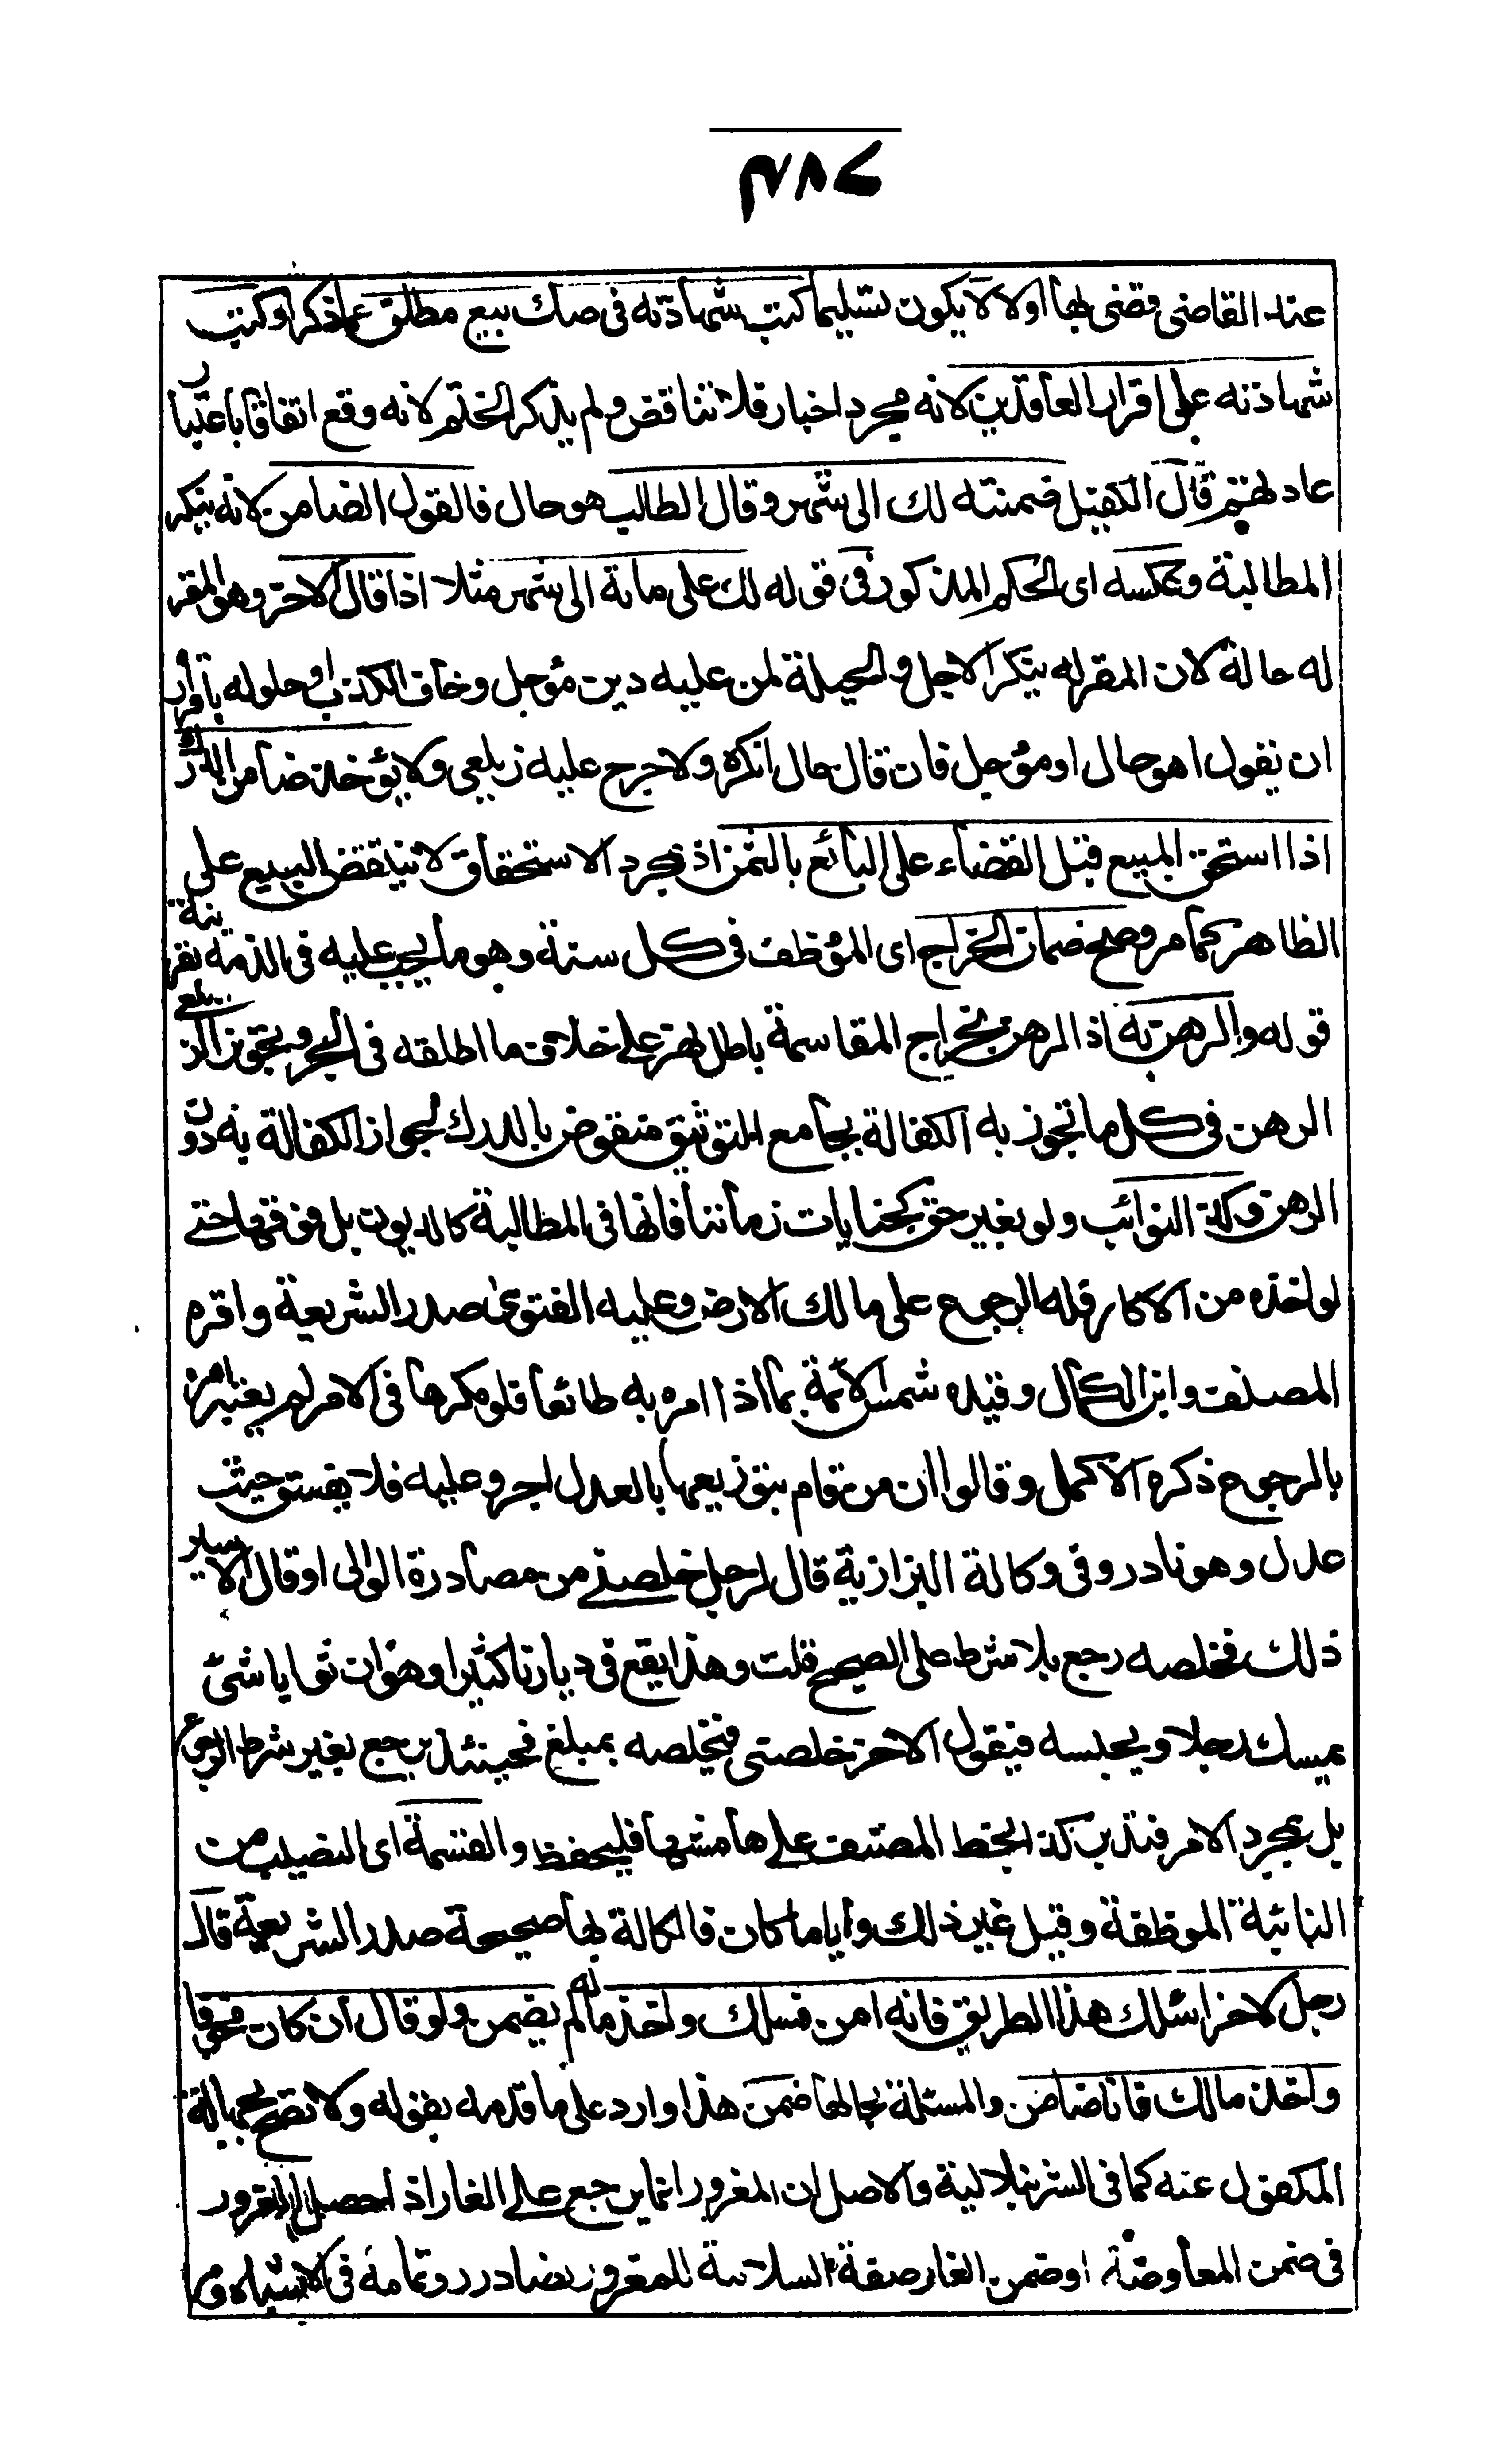 ٣٨٧
عند القاضى فقضى بها اولا لا يكون تسليما كتب شهادته فى صك بيع مطلق عما ذكر او كتب
شهادته على اقرار العاقدين لانه مجرد اخبار فلا تناقض ولم يذكر الختم لانه وقع اتفاقا باعتبار
عادتهم قال الكفيل ضمنته لك الى شهر وقال الطالب هو حال فالقول الضامن لانه ينكر
المطالبة وعكسه اى الحكم المذكور فى قوله لك على مائة الى شهر مثلا اذا قال الاخر وهو المقر
له حالة لان المقر له ينكر الاجل والحيلة لمن عليه دين مؤجل وخاف الكذب او حلوله باقرار
ان يقول اهو حال او مؤجل فان قال حال انكره ولا حرج عليه زيلعى ولا يؤخذ ضامن الدرك
اذا استحق المبيع قبل القضاء على البائع بالثمن اذ بمجرد الاستحقاق لا ينتقض البيع على
الظاهر كما مر وصح ضمان الخراج اى المؤظف فى كل سنة وهو ما يجب عليه فى الذمة بقرينة
قوله والرهن به اذ الرهن بخراج المقاسمة باطل نهر على خلاف ما اطلقه فى البحر وتجويز الزيلعى
الرهن فى كل ما تجوز به الكفالة بجامع التوثيق منقوض بالدرك لجواز الكفالة به دون
الرهن وكذا النوائب ولو بغير حق كجنايات زماننا فانها فى المطالبة كالديون بل فوقها حتى
لو اخذه من الاكار فله الرجوع على مالك الارض وعليه الفتوى صدر الشريعة واقره
المصنف وابن الكمال وقيده شمس الائمة بما اذا امره به طائعا فلو مكرها فى الامر لم يعتبر امره
بالرجوع ذكره الاكمل وقالوا ان من قام بتوزيعها بالعدل اجر وعليه فلا يفسق حيث
عدل وهو نادر وفى وكالة البزازية قال لرجل خلصنى من مصادرة الوالى او قال الاسير
ذلك فخلصه رجع بلا شرط على الصحيح قلت وهذا يقع فى ديارنا كثيرا وهو ان ثوايا شئ
يمسك رجلا ويحبسه فيقول الاخر خلصنى فيخلصه بمبلغ فحينئذ يرجع بغير شرط الرجوع
بل بمجرد الامر فتدبر كذا بخط المصنف على هامشها فليحفظ والقسمة اى النصيب من
النائبة الموظفة وقيل غير ذلك وايا ما كان فالكالة بها صحيحة صدر الشريعة قال
رجل لاخر اسلك هذا الطريق فانه امن فسلك واخذ ماله لم يضمن ولو قال ان كان مخوفا
واخذ مالك فانا ضامن والمسئلة بحالها ضمن هذا وارد على ما قدمه بقوله ولا تصح بجهالة
المكفول عنه كما فى الشرنبلالية والاصل ان المغرور انما يرجع على الغار اذا حصل الغرور
فى ضمن المعاوضة او ضمن الغار صفة السلامة للمغرور نصا درر وتمامه فى الاشباه ومر